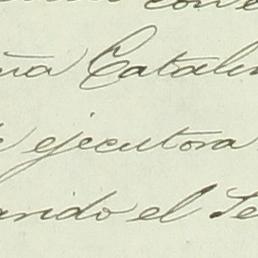 con
ña Catalin
ejecutora
ando el Se